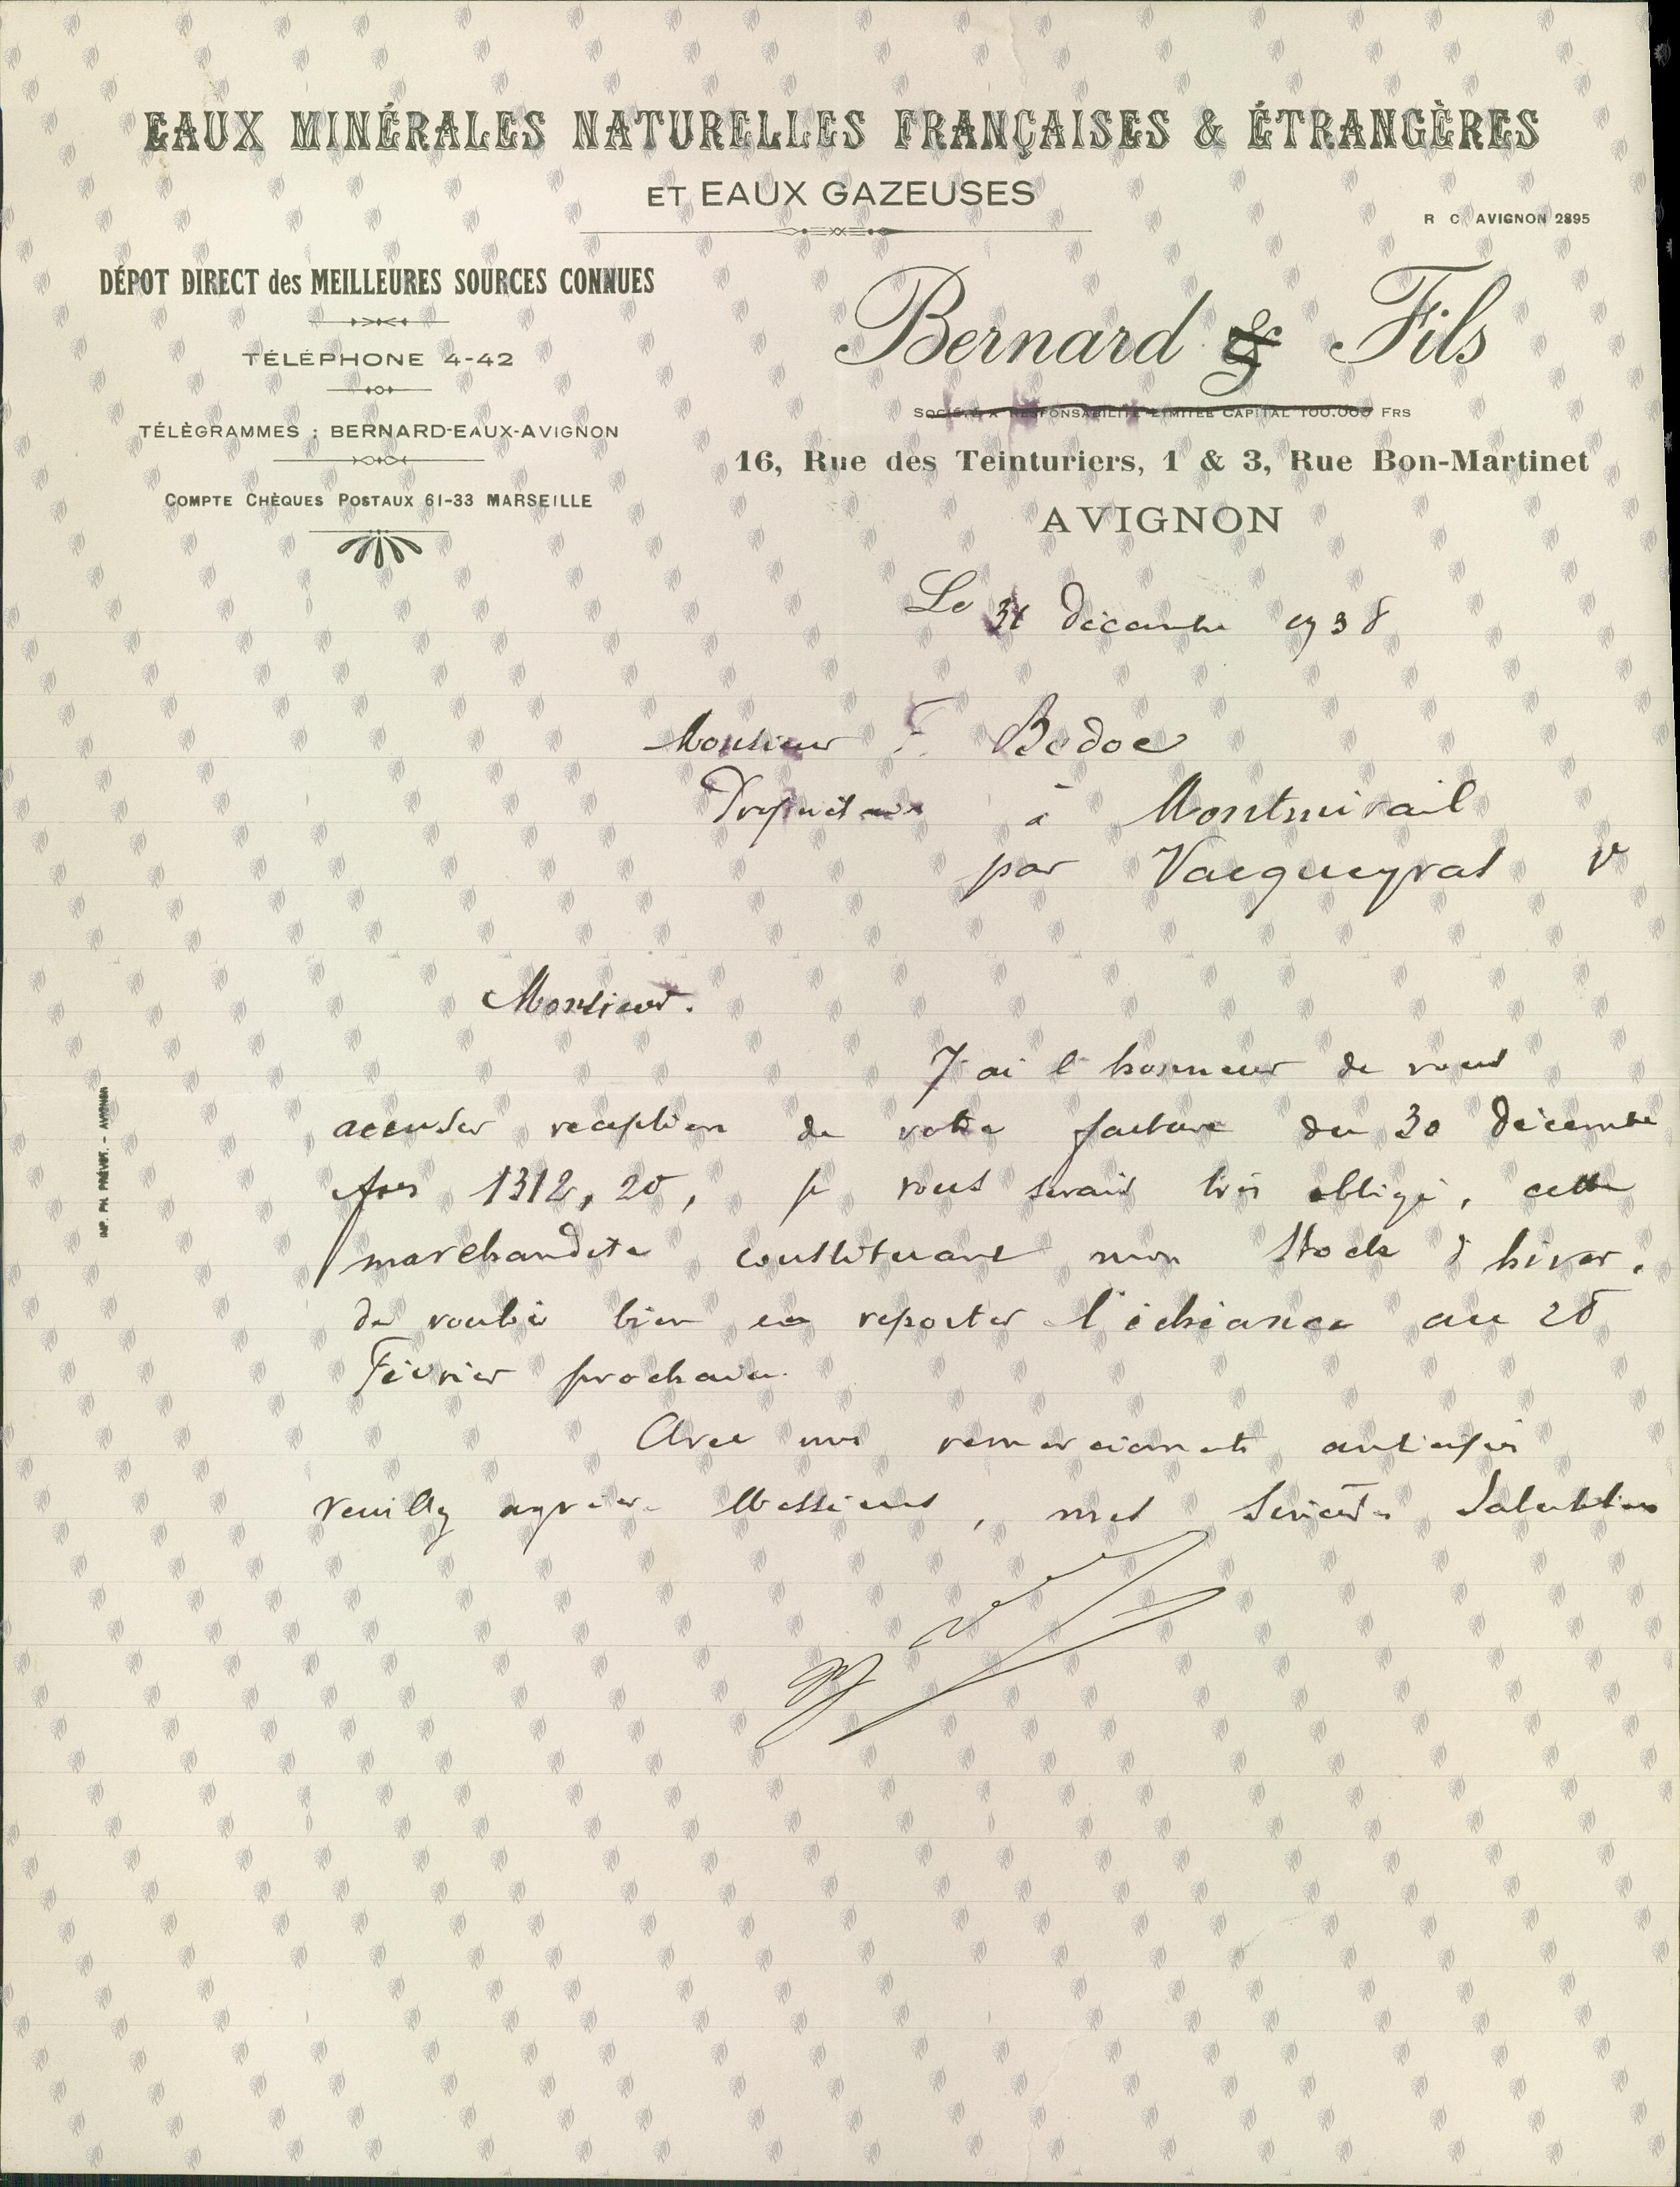 EAUX MINÉRALES NATURELLES FRANÇAISES & ÉTRANGÈRES
ET EAUX GAZEUSES
R C AVIGNON 2895
DÉPOT DIRECT des MEILLEURES SOURCES CONNUES
TÉLÉPHONE 4-42
TÉLÈGRAMMES : BERNARD-EAUX-AVIGNON
COMPTE CHÈQUES POSTAUX 61-33 MARSEILLE
Bernard & Fils
SOCIÉTÉ A RESPONSABILITÉ LIMITÉE CAPITAL 100.000 FRS
16, Rue des Teinturiers, 1 & 3, Rue Bon-Martinet
AVIGNON
Le 31 décembre 1938
Monsieur F. Bedoc
Propriétaire à Montmirail
par Vacqueyras V
Monsieur.
J'ai l'honneur de vous
accuser reception de votre facture du 30 décembre
frs 1312,20, je vous serais très obligé, cette
marchandise constituant mon stock d'hiver,
de vouloir bien en reporter l'échéance au 28
Février prochain.
Avec mes remerciements anticipés
veuillez agréer Messieurs, mes sincères Salutations
IMP. PH. PRÉVOT. - AVIGNON